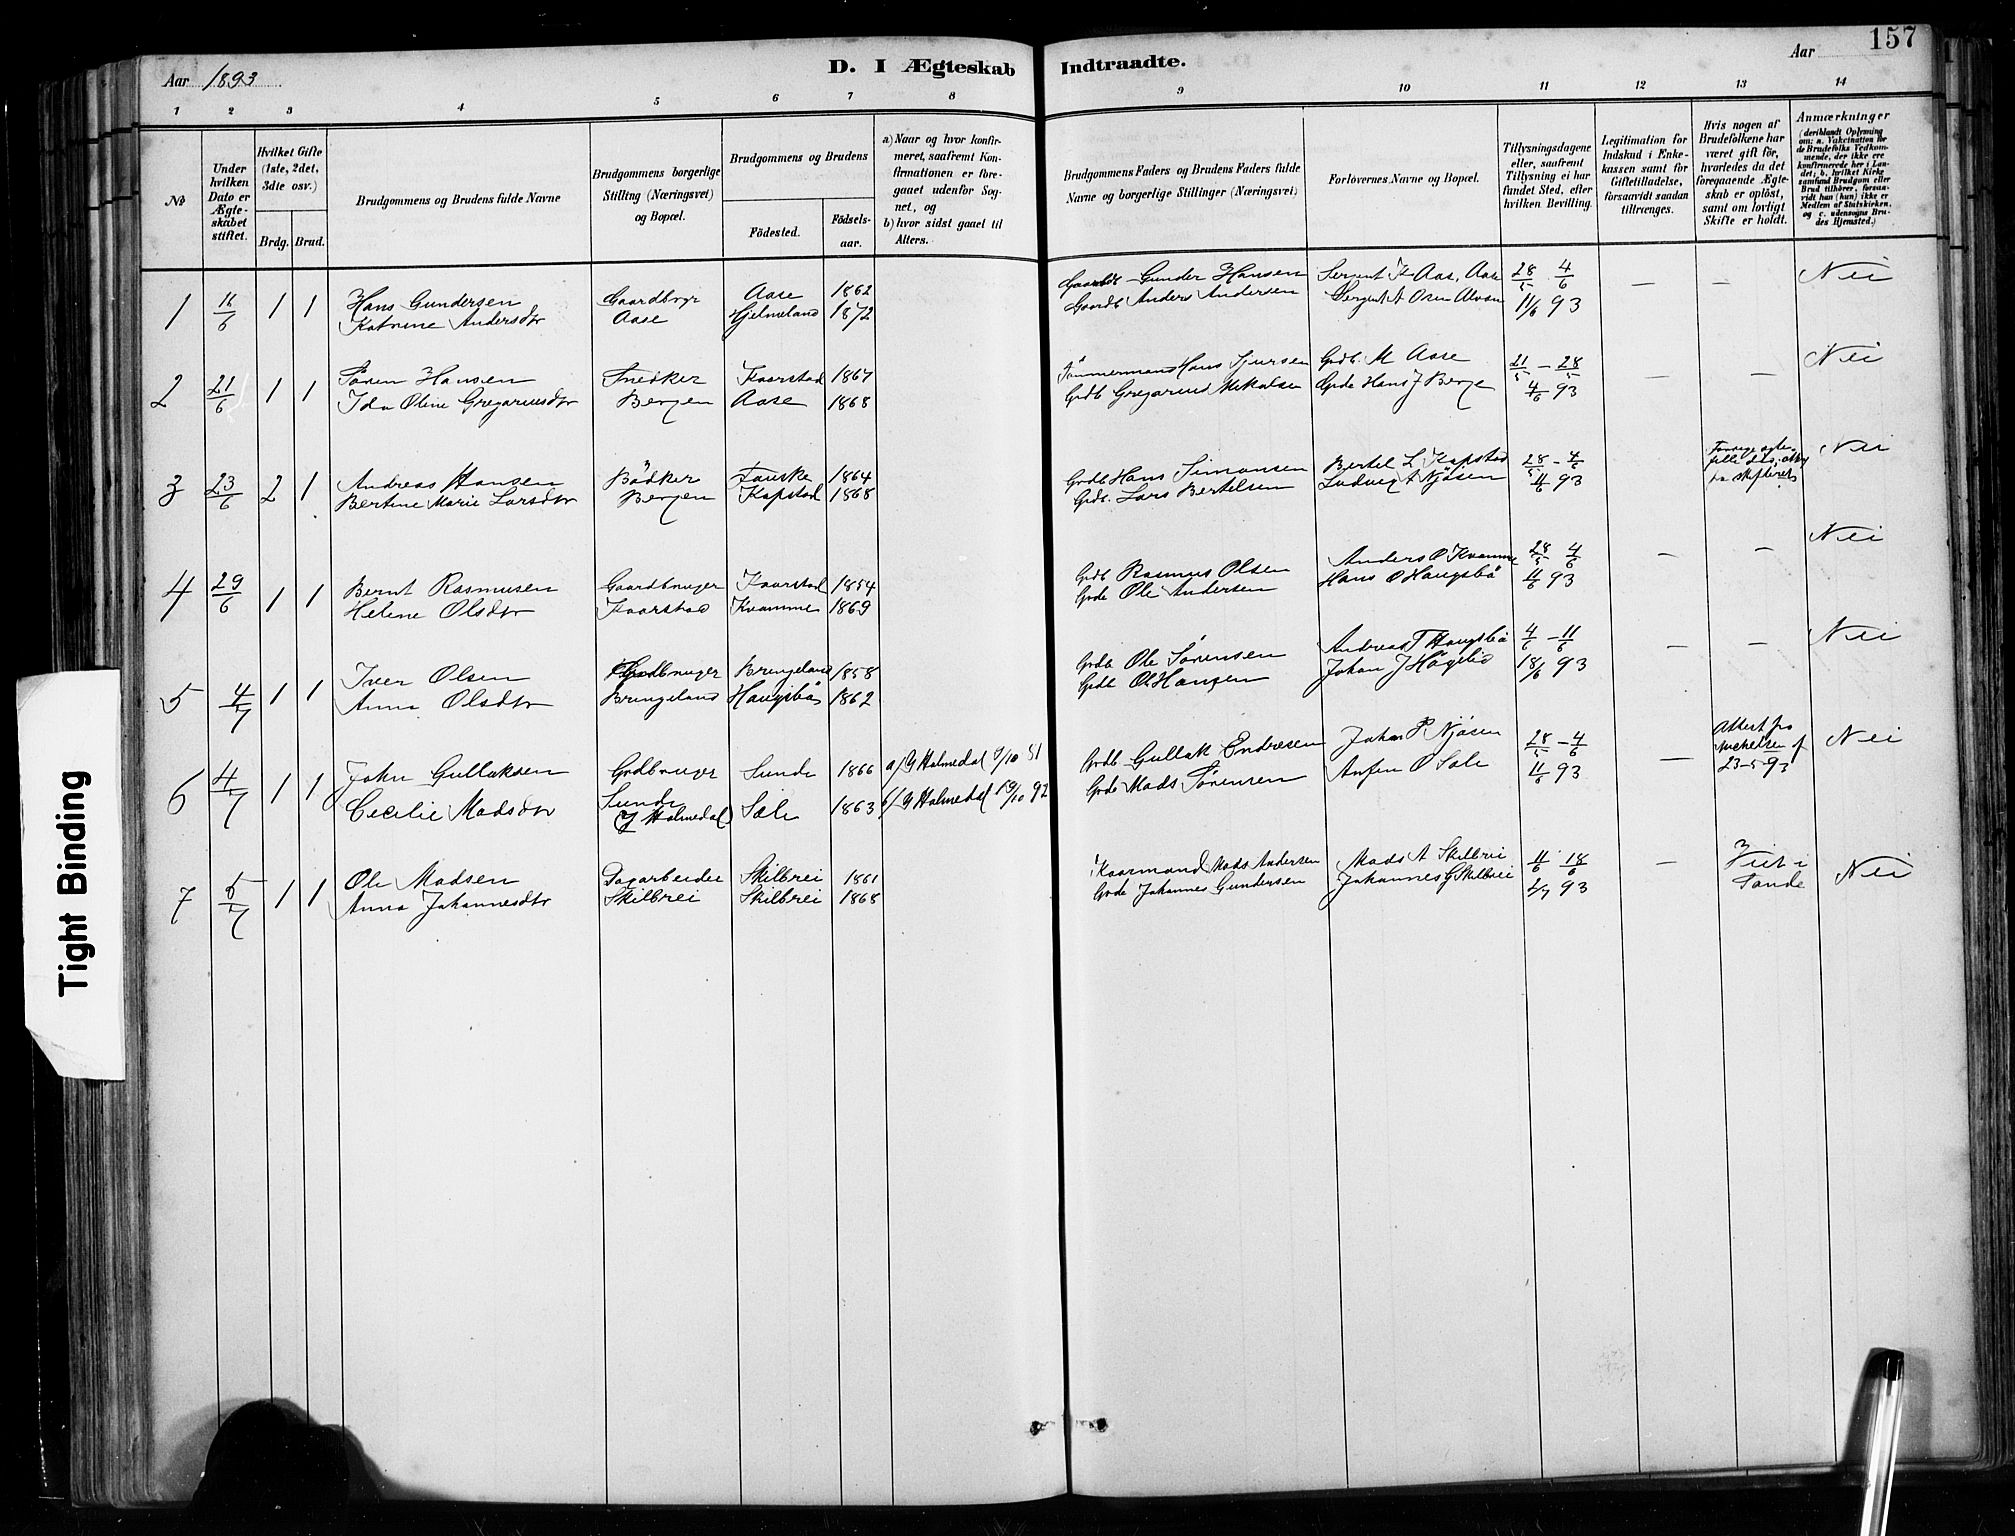 Aar 1893
D. I Ægteskab Indtraadte.
Aar
157
1 2 3 4 5 6 7 8 9 10 11 12 13 14
No
Under hvilken Dato er Ægteskabet stiftet.
Hvilket Gifte (1ste, 2det, 3die osv.)
Brdg. Brud.
Brudgommens og Brudens fulde Navne
Brudgommens borgerlige Stilling (Næringsvei) og Bopæl.
Brudgommens og Brudens
Födested.
Födselsaar.
a) Naar og hvor konfirmeret, saafremt Konfirmationen er foregaaet udenfor Sognet, og
b) hvor sidst gaaet til Alters.
Brudgommens Faders og Brudens Faders fulde Navne og borgerlige Stillinger (Næringsvei)
Forlovernes Navne og Bopæl.
Tillysningsdagene eller, saafremt Tillysning ei har fundet Sted, efter hvilken Bevilling.
Legitimation for Indskud i Enkekassen samt for Giftetilladelse, forsaavidt saadan tiltrænges.
Hvis nogen af Brudefolkene har været gift för, hvorledes da det foregaaende Ægteskab er oplöst, samt om lovligt Skifte er holdt.
Anmærkninger
(deriblandt Oplysning om: a. Vakcination for de Brudefolks Vedkommende, der ikke ere konfirmerede her i Landet; b. hvilket Kirkesamfund Brudgom eller Brud tilhörer, forsaavidt han (hun) ikke er Medlem af Statskirken, og c. udensogns Brudes Hjemsted.)
1 11/6 1 1 Hans Gundersen Gaardbrgr Aase 1862 Gaardb Gunder Hansen Sergent K Aase, Aase 28/5 4/6 — — Nei
Katrine Andersdtr Aase Hjelmeland 1872 Gaardb Anders Andersen Sergent A Osen Alvan 11/6 93
2 21/6 1 1 Sören Hansen Snedker Kaarstad 1867 Tömmermand Hans Sjursen Grdb. M Aase 21/5 – 28/5 — — Nei
Ida Oline Gregoriusdtr Bergen Aase 1868 Grdb Gregorius Mikalsen Grdb Hans J Berge 4/6 93
3 23/6 2 1 Andreas Hansen Bödker Fauske 1864 Grdb Hans Simonsen Bertel L Kapstad 28/5 – 4/6 Nei
Bertine Marie Larsdtr Bergen Kapstad 1868 Grdb. Lars Bertelsen Ludvig A Njösen 11/6 93
4 29/6 1 1 Bernt Rasmusen Gaardbruger Kaarstad 1854 Grdb Rasmus Olsen Anders O Kvamme 28/5 4/6 — — Nei
Helene Olsdtr Kaarstad Kvamme 1869 Grdb Ole Andersen Hans O Haugsbö 11/6 93
5 4/7 1 1 Iver Olsen Grdbruger Bringeland 1858 Grdb Ole Sørensen Andreas T Haugsbö 4/6 – 11/6 — — Nei
Anna Olsdtr Bringeland Haugsbö 1862 Grdb Ol Hansen Johan J Högelid 18/6 93
6 4/7 1 1 John Gullaksen Grdbruger Sunde 1866 a/ Y Holmedal 9/10 81 Grdb Gullak Endresen Johan P Njösen 28/5 – 4/6 — Attest fra Mickelsen af 23-5-93 Nei
Cecilie Madsdtr Sunde Y Holmedal Sæle 1863 b/ Y Holmedal 19/10 92 Grdb Mads Sørensen Anfen O Sæle 11/6 93
7 5/7 1 1 Ole Madsen Dagarbeider Skilbrei 1861 Kaarmand Mads Andersen Mads A Skilbrei 11/6 18/6 — Viet i Sande Nei
Anna Johannesdtr Skilbrei Skilbrei 1868 Grdb Johannes Gundersen Johannes G Skilbrei 2/7 93
Tight Binding